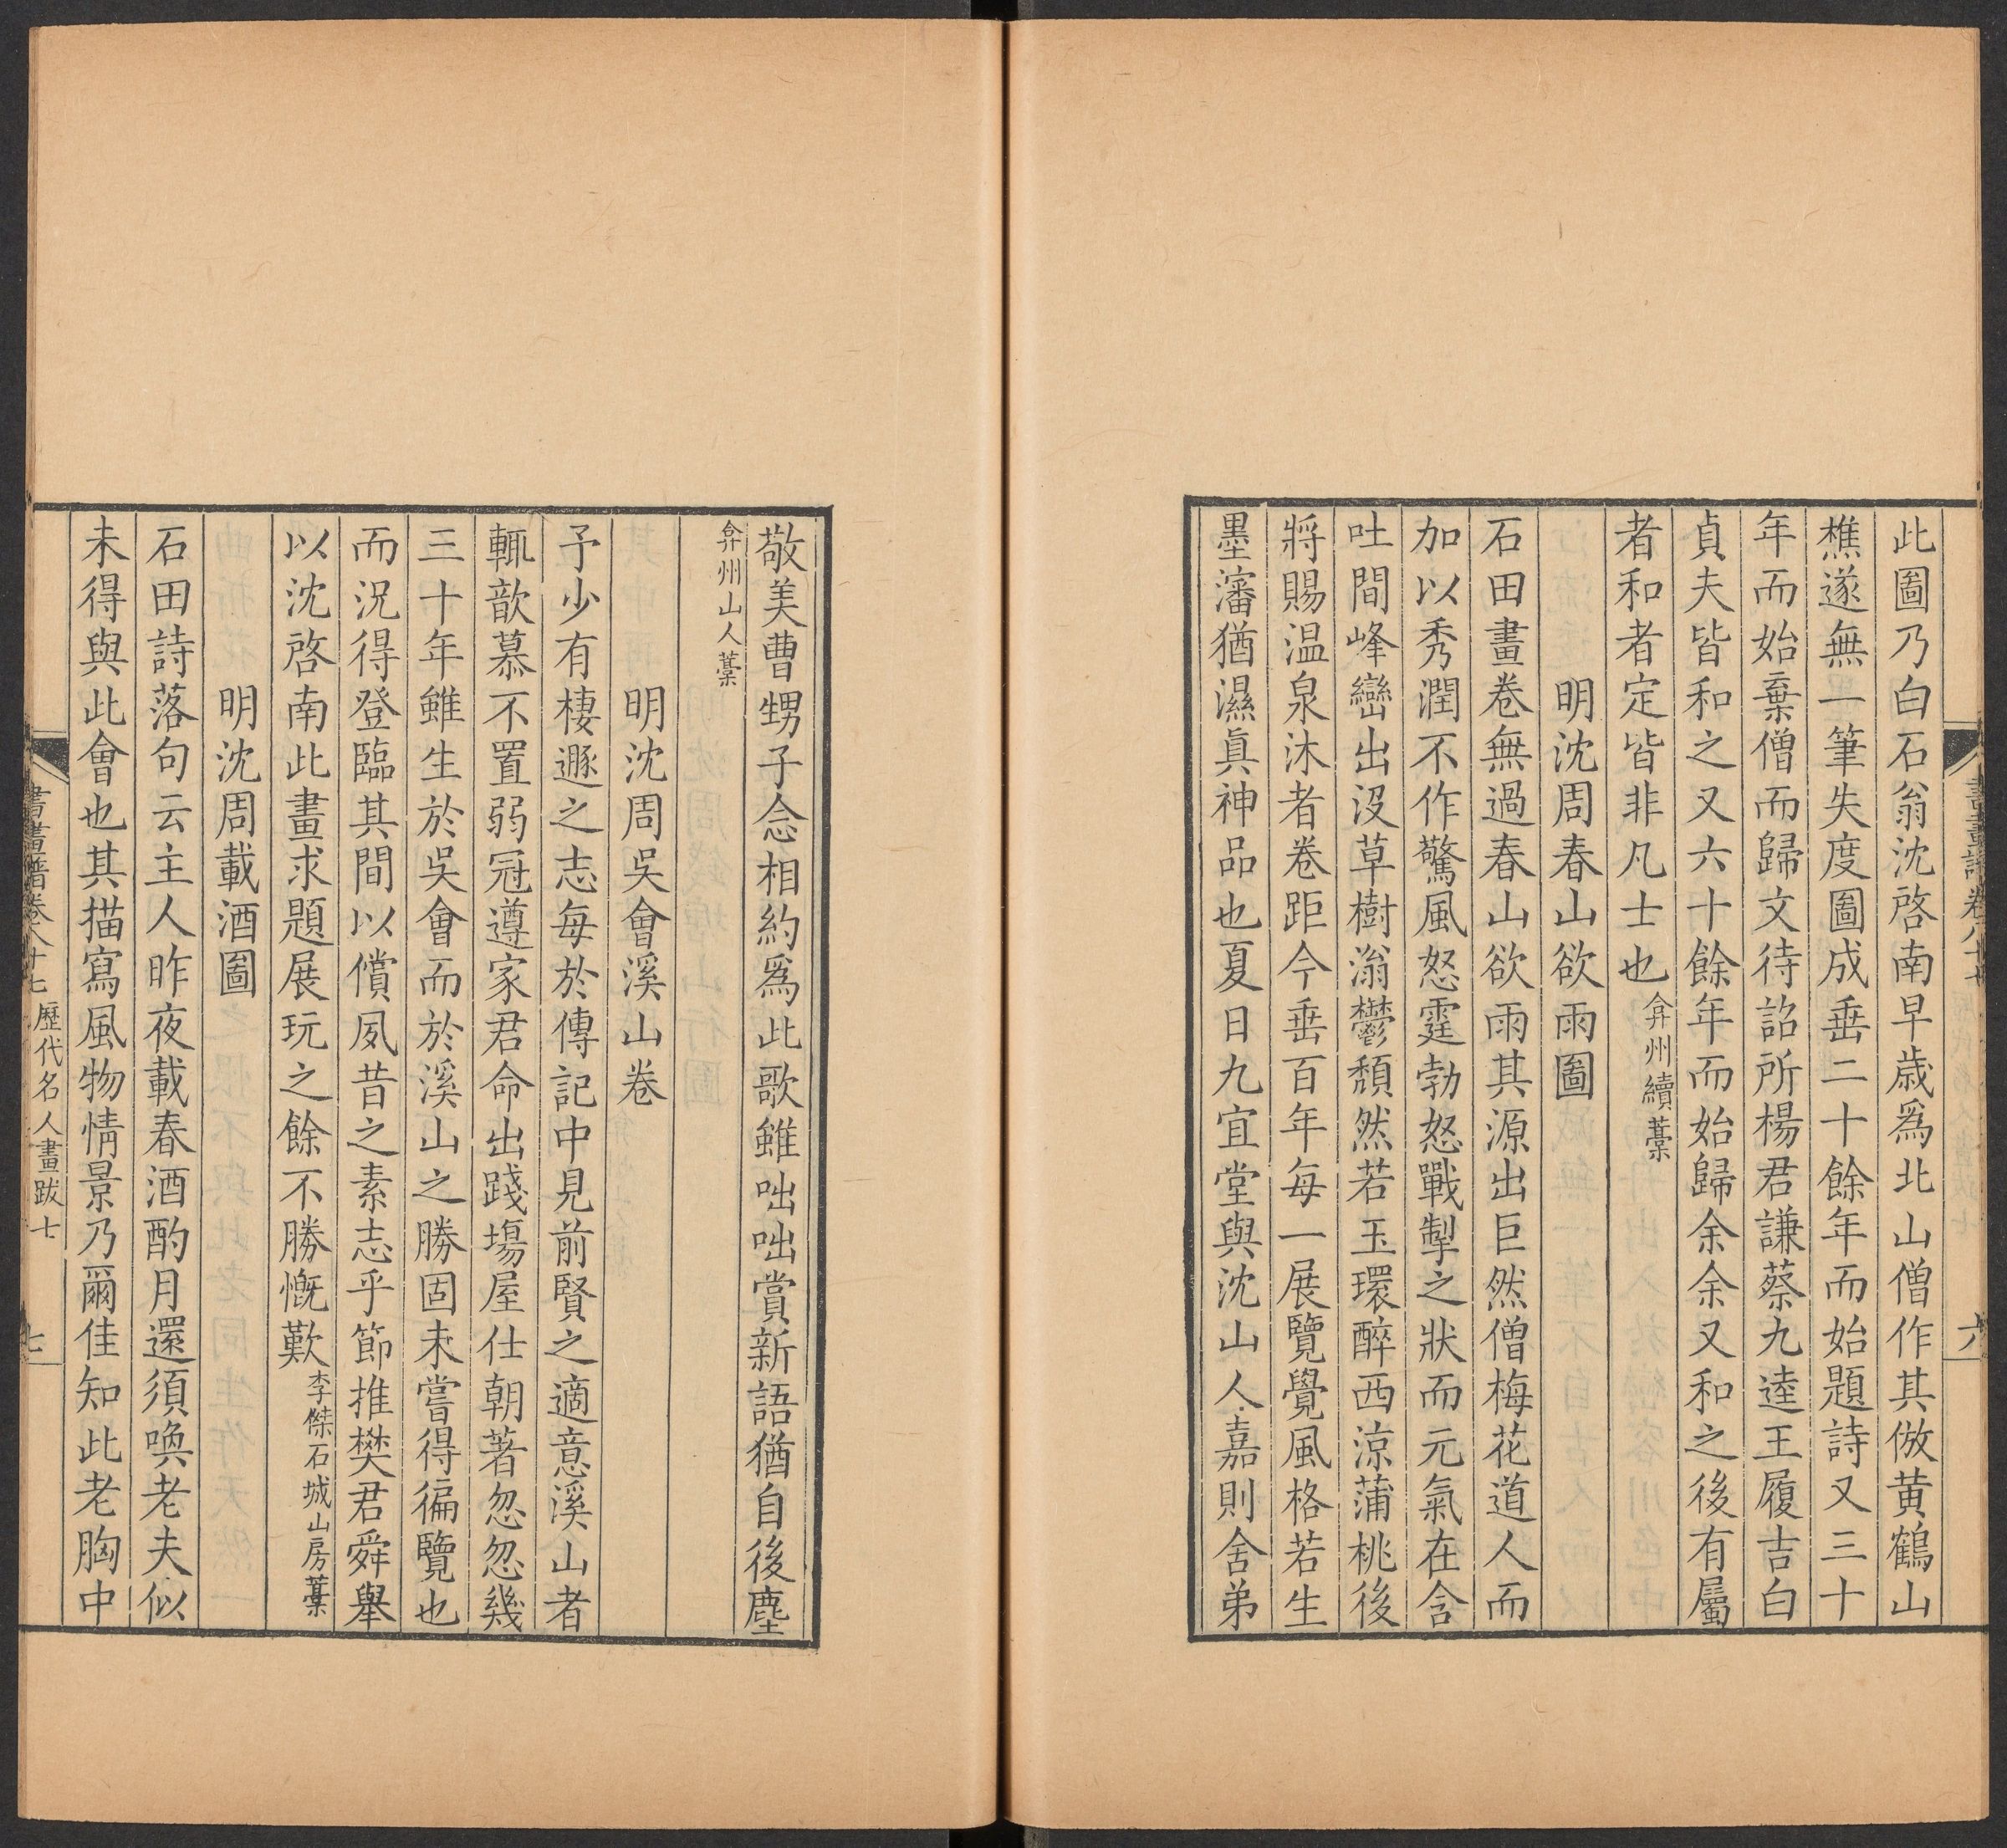 書畫譜卷八十七
六
此圖乃白石翁沈啓南早歲爲北山僧作其倣黄鶴山
樵遂無一筆失度圖成垂二十餘年而始題詩又三十
年而始棄僧而歸文待詔所楊君謙蔡九逵王履吉白
貞夫皆和之又六十餘年而始歸余余又和之後有屬
者和者定皆非凡士也弇州續藁
明沈周春山欲雨圖
石田畫卷無過春山欲雨其源出巨然僧梅花道人而
加以秀潤不作驚風怒霆勃怒戰掣之狀而元氣在含
吐間峰巒出沒草樹滃鬱頹然若玉環醉西涼蒲桃後
將賜温泉沐者卷距今垂百年每一展覽覺風格若生
墨瀋猶濕眞神品也夏日九宜堂與沈山人嘉則舍弟
敬美曹甥子念相約爲此歌雖咄咄賞新語猶自後塵
弇州山人藁
明沈周吳會溪山卷
予少有棲遯之志每於傳記中見前賢之適意溪山者
輒歆慕不置弱冠遵家君命出踐場屋仕朝著忽忽幾
三十年雖生於吳會而於溪山之勝固未嘗得徧覽也
而況得登臨其間以償夙昔之素志乎節推樊君舜舉
以沈啓南此畫求題展玩之餘不勝慨歎李傑石城山房藁
明沈周載酒圖
石田詩落句云主人昨夜載春酒酌月還須喚老夫似
未得與此會也其描寫風物情景乃爾佳知此老胸中
書畫譜卷八十七 歷代名人畫跋七
七